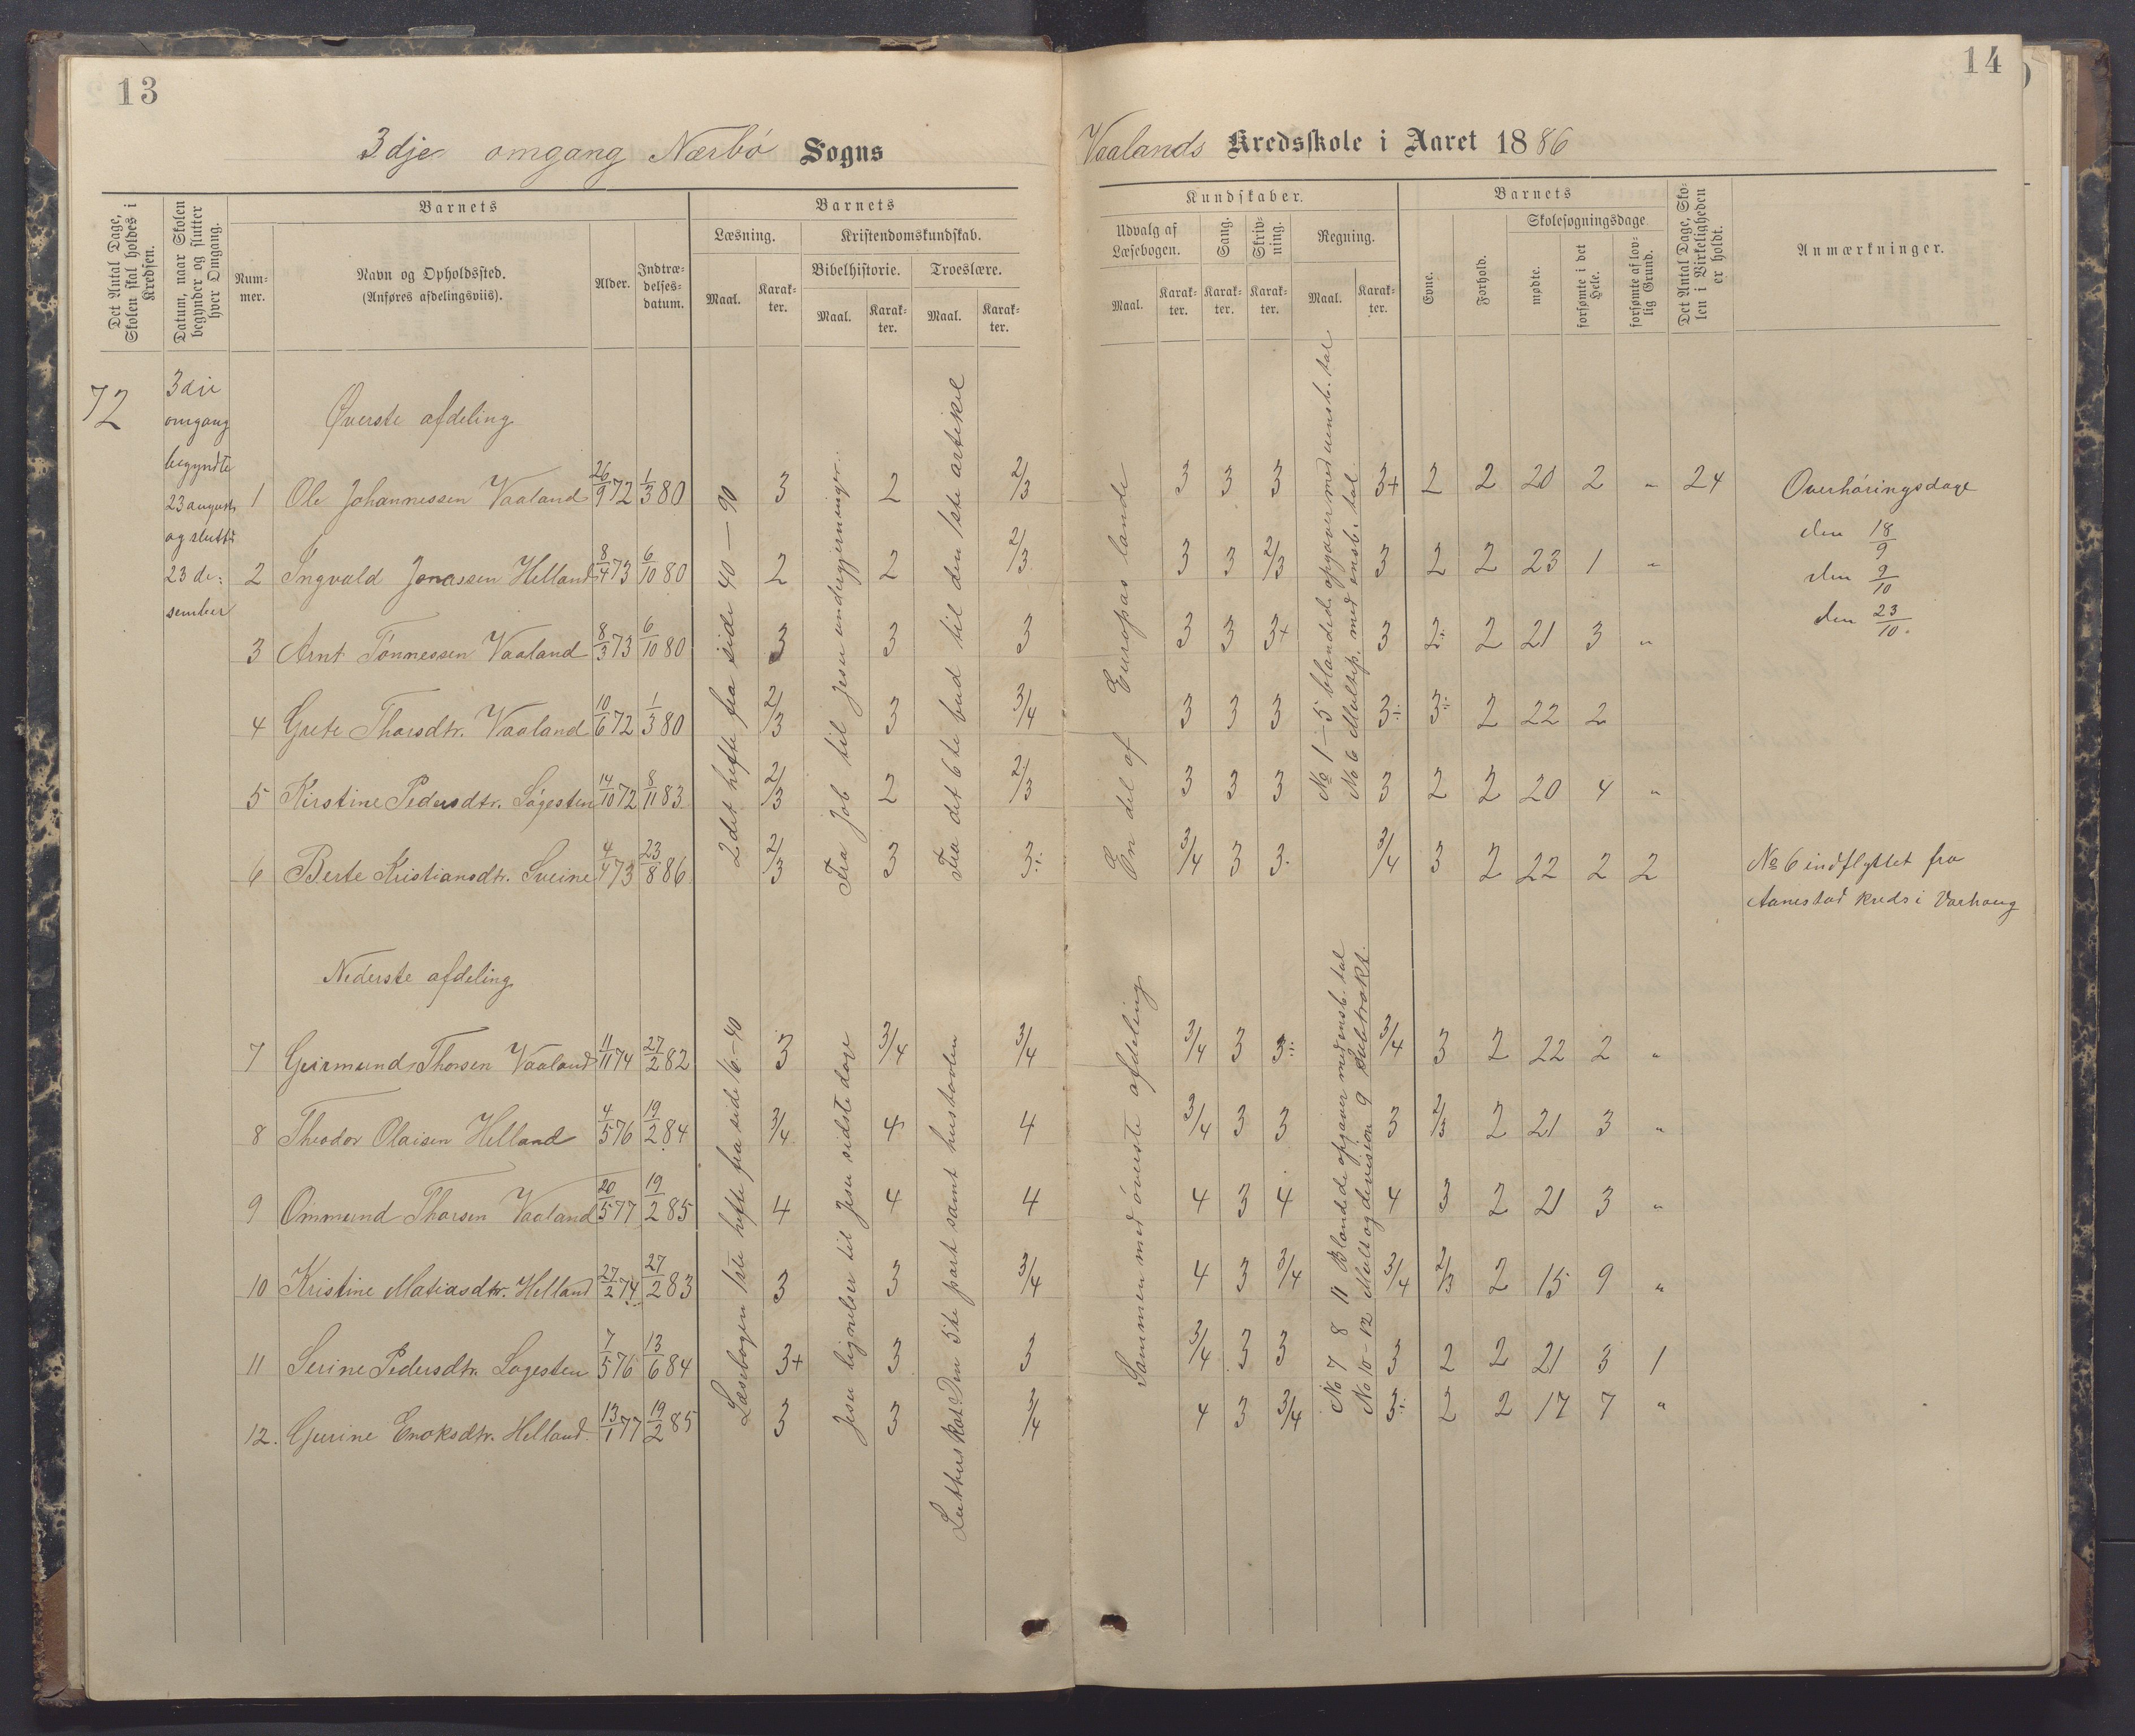 13
14
3dje omgang Nærbö Sogns
Vaalands Kredsskole i Aaret 1886
Det Antal Dage, Skolen skal holdes i Kredsen.
Datum, naar Skolen begynder og slutter hver Omgang.
Barnets
Nummer.
Navn og Opholdssted.
(Anføres afdelingsviis).
Alder.
Indtrædelsesdatum.
Barnets
Læsning.
Maal.
Karakter.
Kristendomskundskab.
Bibelhistorie.
Maal.
Karakter.
Troeslære.
Maal.
Karakter.
Kundskaber.
Udvalg af Læsebogen.
Maal.
Karakter.
Sang.
Karakter.
Skrivning.
Karakter.
Regning.
Maal.
Karakter.
Barnets
Evne.
Forhold.
Skolesøgningsdage.
mødte.
forsømte i det Hele.
forsømte af lovlig Grund.
Det Antal Dage, Skolen i Virkeligheden er holdt.
Anmærkninger.
72
3die
omgang
begyndte
23 august
og slutte
23 de:
sember
Øverste afdeling
1 Ole Johannessen Vaaland 26/9 72 1/3 80 3 2 2/3 3 3 3 3+ 2 2 20 2 " 24
2 Ingvald Jonassen Helland 8/4 73 6/10 80 2 2 2/3 3 3 2/3 3 2 2 23 1 "
3 Arnt Tönnessen Vaaland 8/3 73 6/10 80 3 3 3 3 3 3+ 3 2÷ 2 21 3 "
4 Grete Thorsdtr. Vaaland 10/6 72 1/3 80 2/3 3 3/4 3 3 3 3÷ 3÷ 2 22 2
5 Kirstine Pedersdtr. Lögesten 14/10 72 8/11 83 2/3 2 2/3 3 3 3 3 2 2 20 4 "
6 Berte Kristiansdtr. Sveine 4/4 73 23/8 86 2/3 3 3÷ 3/4 3 3 3/4 3 2 22 2 2
2det hefte fra side 40 — 90
Fra Job til Jesu undergjerninger.
Fra det 6te bud til den 1ste artikel
En del af Europas lande
No 1 — 5 blandede opgaver med uensb. tal
No 6 Multip. med ensb. tal.
Overhöringsdage
den 18/9
den 9/10
den 23/10.
No 6 indflyttet fra
Aanestad kreds i Varhaug
Nederste afdeling
7 Geirmund Thorsen Vaaland 11/11 74 27/2 82 3 3/4 3/4 3/4 3 3÷ 3/4 3 2 22 2 "
8 Theodor Olaisen Helland 4/5 76 19/2 84 3/4 4 4 3/4 3 3 3 2/3 2 21 3 "
9 Ommund Thorsen Vaaland 20/5 77 19/2 85 4 4 4 4 3 4 4 3 2 21 3 "
10 Kristine Matiasdtr. Helland 27/2 74 27/2 83 3 3 3/4 4 3 3/4 3/4 2/3 2 15 9 "
11 Serine Pedersdtr. Logesten 7/5 76 13/6 84 3+ 3 3 3/4 3 3 3 2 2 21 3 1
12. Gurine Enoksdtr. Helland 13/1 77 19/2 85 3 3 3/4 4 3 3/4 3÷ 2 2 17 7 "
Læsebogen 1ste hefte fra side 16–40
Jesu lignelser til Jesu sidste dage
Luthers kat. Den 5te part samt hustavlen
Sammen med överste afdeling
No 7 8 11 Blandede opgaver med ensb. tal
No 10–12 Mult og devision 9 Subtrakt.